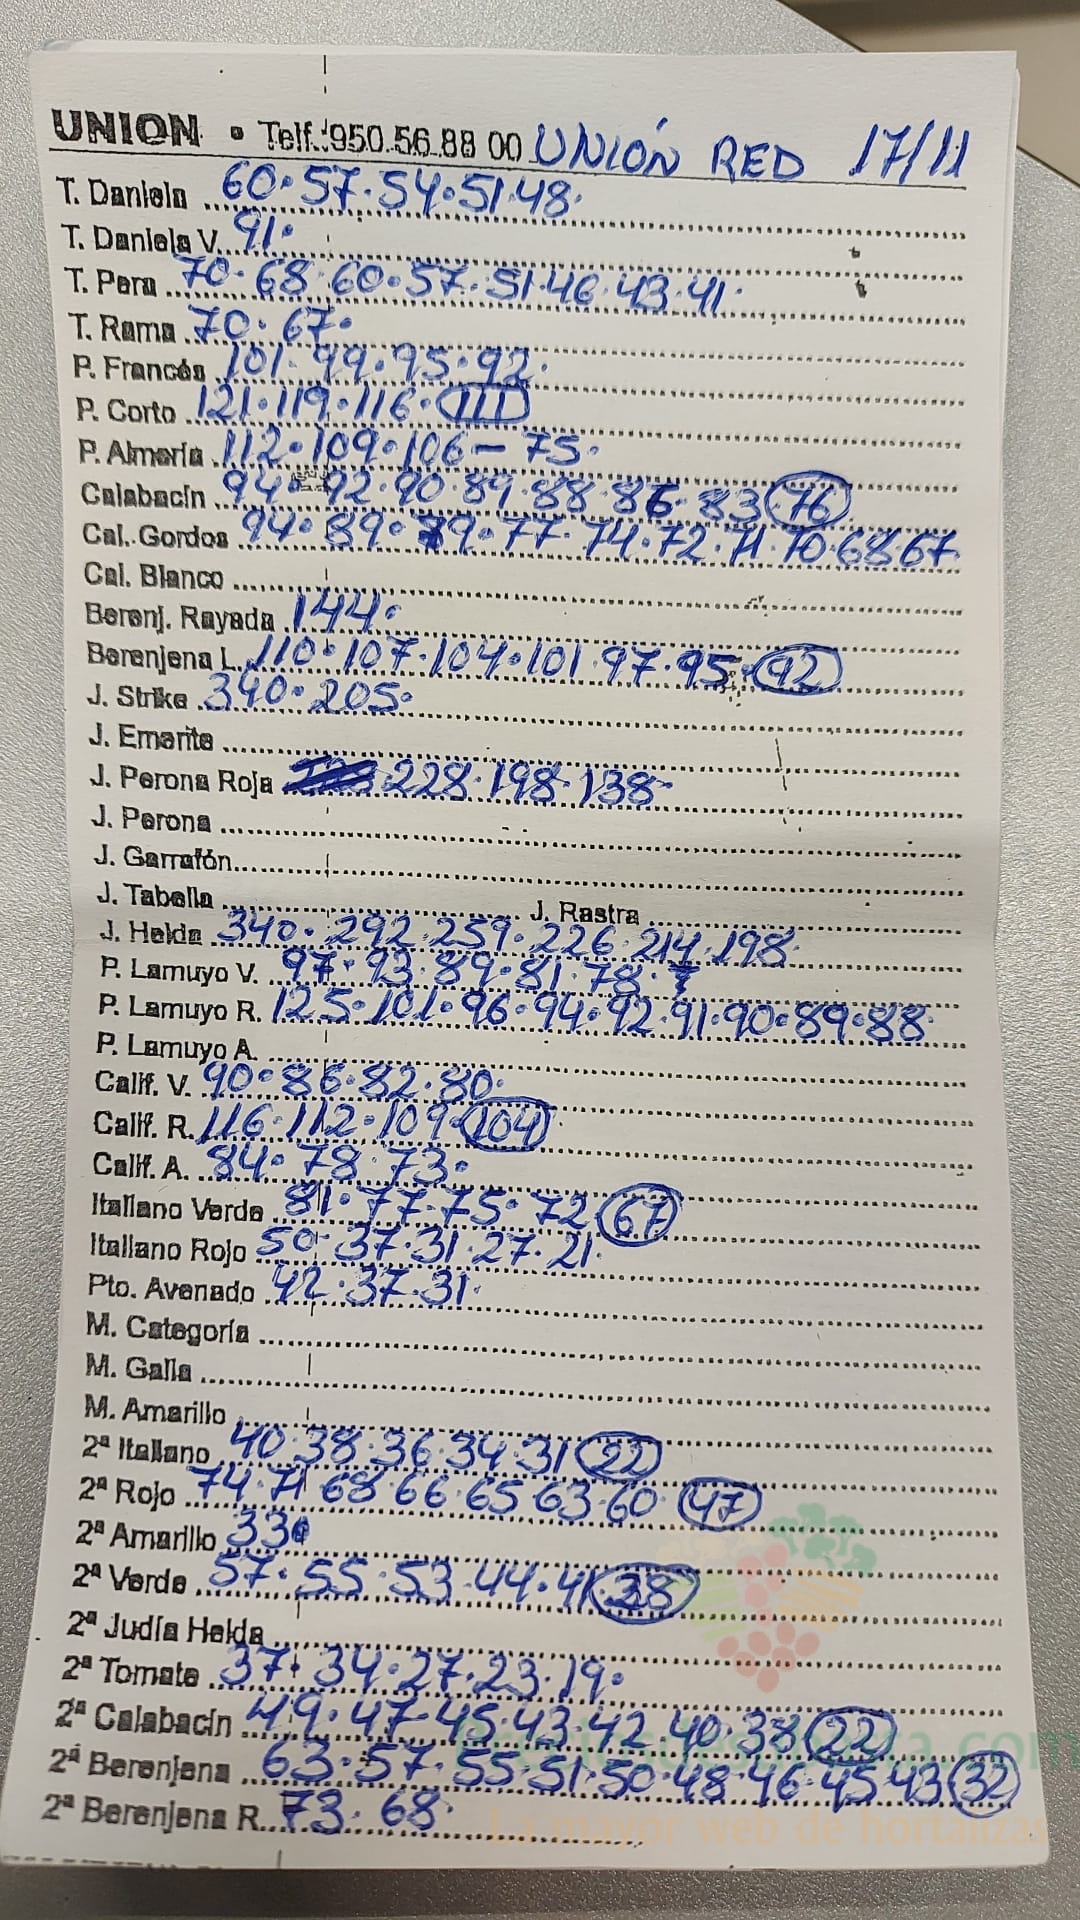 UNION • Telf. 950.56.88 00 UNIÓN RED 17/11
T. Daniela 60.57.54.51.48.
T. Daniela V. 91.
T. Pera 70.68.60.57.51.46.43.41.
T. Rama 70.67.
P. Francés 101.99.95.92.
P. Corto 121.119.116.111
P. Almería 112.109.106-75.
Calabacín 94.92.90.89.88.86.83 76
Cal. Gordos 94.89.79.77.74.72.71.70.68.67
Cal. Blanco
Berenj. Rayada 144.
Berenjena L. 110.107.104.101.97.95.92
J. Strike 340.205.
J. Emerite
J. Perona Roja 228.198.138
J. Perona
J. Garrafón
J. Tabella J. Rastra
J. Helda 340.292.259.226.214.198
P. Lamuyo V. 97.93.89.81.78.
P. Lamuyo R. 125.101.96.94.92.91.90.89.88
P. Lamuyo A.
Calif. V. 90.86.82.80.
Calif. R. 116.112.109 104
Calif. A. 84.78.73.
Italiano Verde 81.77.75.72 67
Italiano Rojo 50.37.31.27.21.
Pto. Avenado 42.37.31.
M. Categoría
M. Galia
M. Amarillo
2ª Italiano 40.38.36.34.31 22
2ª Rojo 74.71 68.66.65 63.60. 47
2ª Amarillo 33.
2ª Verde 57.55.53.44.41 38
2ª Judía Helda
2ª Tomate 37.34.27.23.19.
2ª Calabacín 49.47.45.43.42 40.38 22
2ª Berenjena 63.57.55.51.50.48.46.45.43 32
2ª Berenjena R. 73.68.
La mayor web de hortalizas